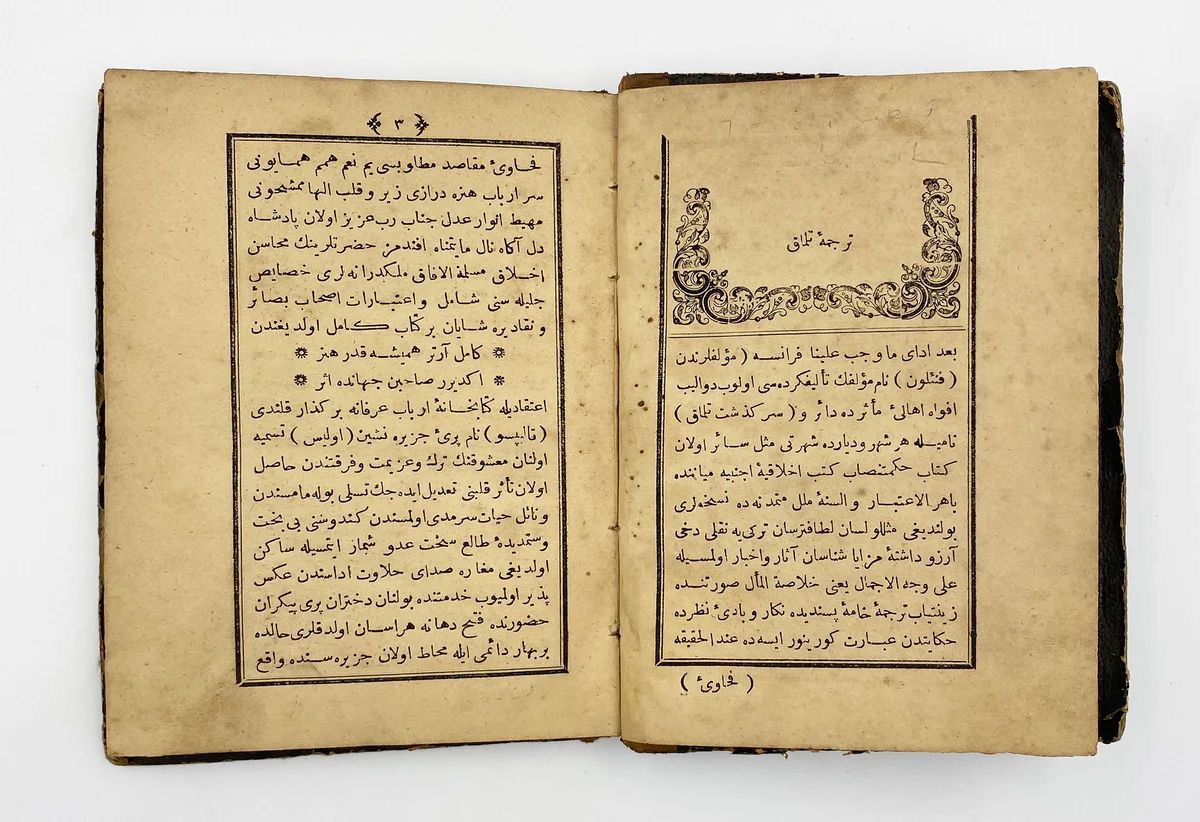 ترجمۀ تلماق
بعد ادای ما وجب علینا فرانسه ( مؤلفلرندن
( فنئلون ) نام مؤلفك تألیفکرده سی اولوب دوالیب
افواه اهالئ مأثرده دائر و ( سرکذشت تلماق )
نامیله هر شهر ودیارده شهرتی مثل سائر اولان
کتاب حکمتنصاب کتب اخلاقیۀ اجنبیه میاننده
باهر الاعتبار و السنۀ ملل متمدنه ده نسخه لری
بولندیغی مثللو لسان لطافترسان ترکی یه نقلی دخی
آرزو داشتۀ مزایا شناسان آثار واخبار اولمسیله
علی وجه الاجمال یعنی خلاصة المأل صورتنده
زینتیاب ترجمۀ خامۀ پسندیده نکار و بادئ نظرده
حکایتدن عبارت کورینور ایسه ده عند الحقیقه
( فحاوئ )
٣
فحاوئ مقاصد مطاوبسی یم نعم همم همایونی
سر ارباب هنزه درازی زیر و قلب الهامشحونی
مهبط انوار عدل جناب رب عزیز اولان پادشاه
دل آکاه نال مایتمناه افندمز حضرتلرینك محاسن
اخلاق مسلمة الافاق ملکدارانه لری خصایص
جلیله سنی شامل و اعتبارات اصحاب بصائر
و نقادیره شایان بر کتاب کامل اولدیغندن
کامل آرتر همیشه قدر هنز
اکدیرر صاحبن جهانده اثر
اعتقادیله کتابخانۀ ارباب عرفانه بر کذار قلندی
( قالیپسو ) نام پرئ جزیره نشین ( اولیس ) تسمیه
اولنان معشوقنك ترك وعزیمت وفرقتندن حاصل
اولان تأثر قلبنی تعدیل ایده جك تسلی بوله مامسندن
و نائل حیات سرمدی اولمسندن کندوسنی بی بخت
وستمدیدۀ طالع سخت عدو شمار ایتمسیله ساکن
اولدیغی مغاره صدای حلاوت اداسندن عکس
پذیر اولمیوب خدمتنده بولنان دختران پری پیکران
حضورنده فتح دهانه هراسان اولدقلری حالده
بر بهار دائمی ایله محاط اولان جزیره سنده واقع